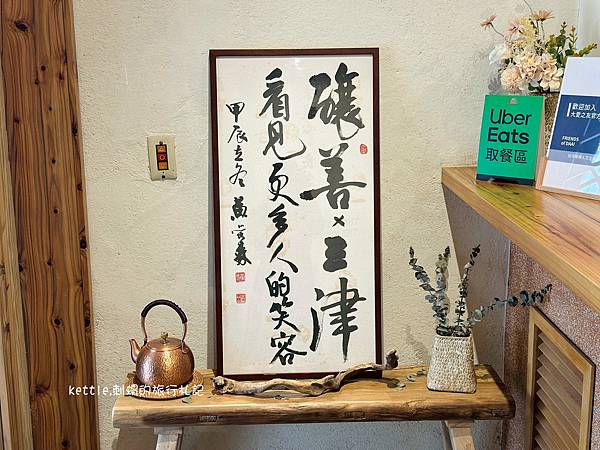 釀善×三津
看見更多人的笑容
甲辰立冬
Uber
Eats
取餐區
歡迎加入
大愛之友官方
FRIENDS
of DAAI
kettle.刺蝟的旅行札記